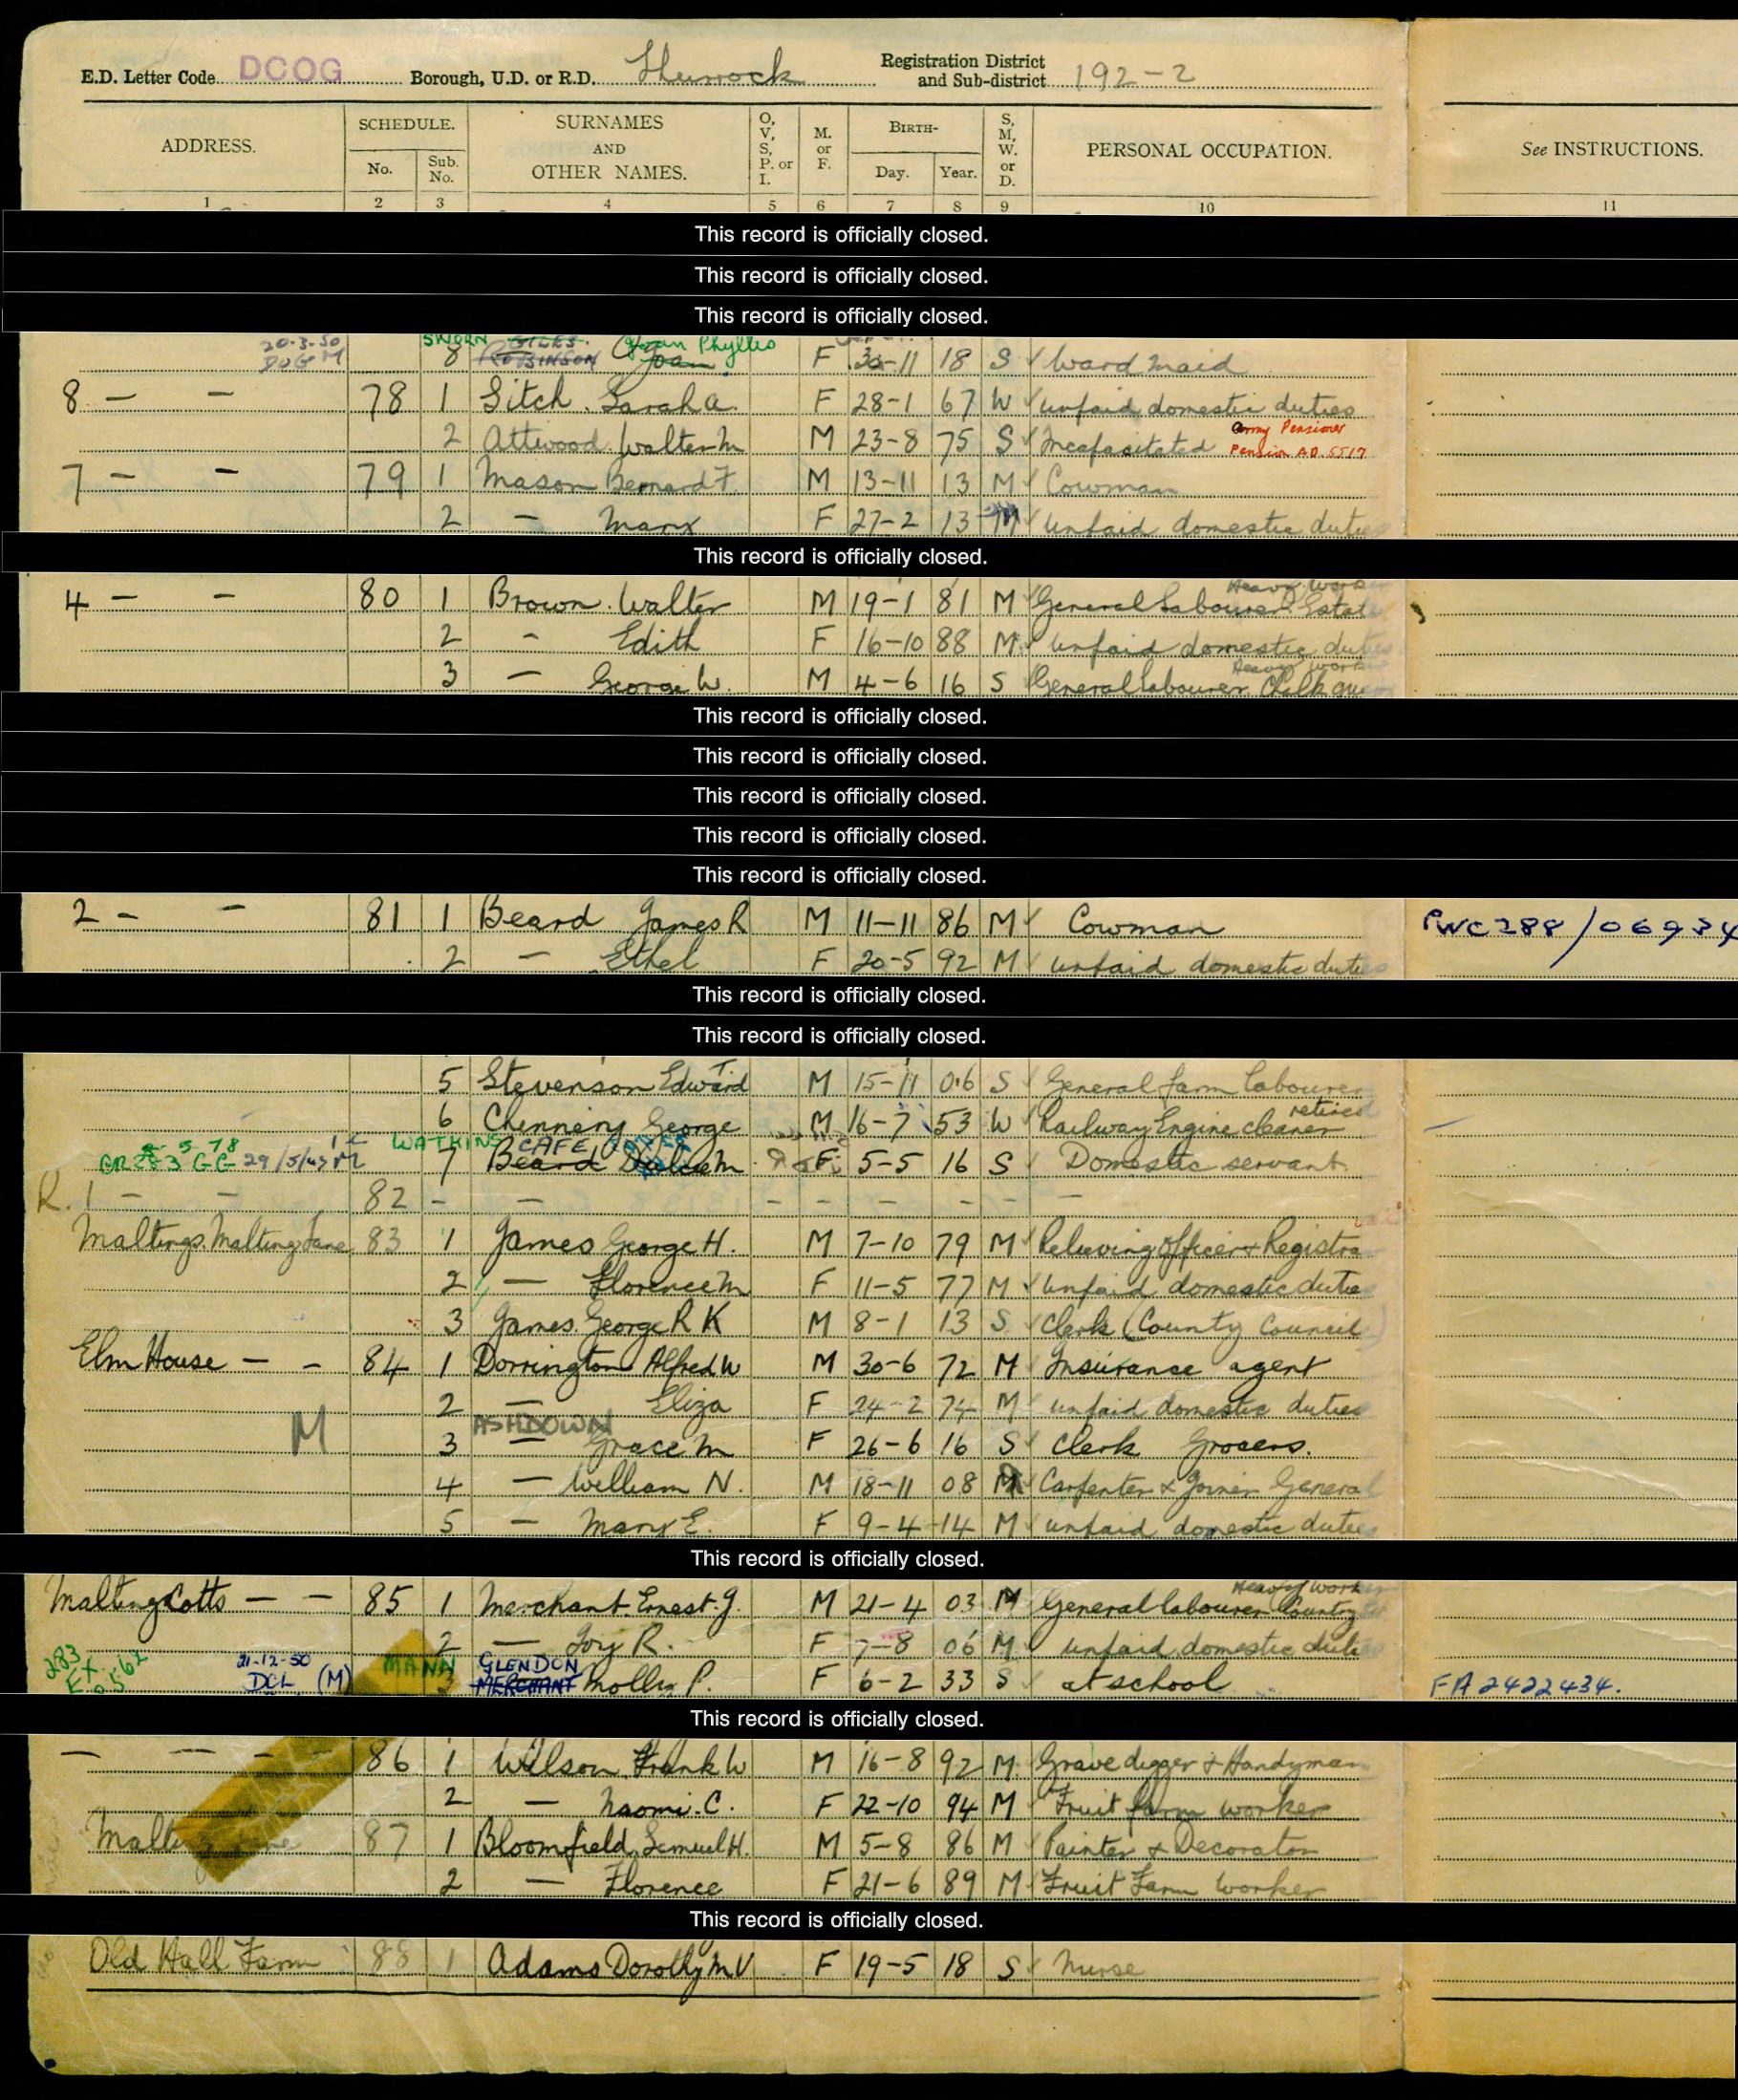 E.D. Letter Code DCOG Borough, U.D. or R.D. Thurrock Registration District and Sub-district 192-2
ADDRESS. SCHEDULE. No. Sub. No. SURNAMES AND OTHER NAMES. O, V, S, P. or I. M. or F. BIRTH- Day. Year. S, M, W. or D. PERSONAL OCCUPATION. See INSTRUCTIONS.
1 2 3 4 5 6 7 8 9 10 11
This record is officially closed.
This record is officially closed.
This record is officially closed.
20-3-50 SWORN GILES Joan Phyllis
DUG M 8 ROBINSON Joan F 30-11 18 S Ward maid
8 — — 78 1 Sitch Sarah A. F 28-1 67 W unpaid domestic duties
2 Attwood Walter M M 23-8 75 S Incapacitated Army Pensioner Pension AO 5517
7 — — 79 1 Mason Bernard F. M 13-11 13 M Cowman
2 — Mary F 27-2 13 M unpaid domestic duties
This record is officially closed.
4 — — 80 1 Brown Walter M 19-1 81 M General Labourer Estate Heavy Work
2 — Edith F 16-10 88 M unpaid domestic duties
3 — George W. M 4-6 16 S General labourer Chalk Heavy work
This record is officially closed.
This record is officially closed.
This record is officially closed.
This record is officially closed.
This record is officially closed.
2 — — 81 1 Beard James R M 11-11 86 M Cowman PWC288/06934
2 — Ethel F 20-5 92 M unpaid domestic duties
This record is officially closed.
This record is officially closed.
5 Stevenson Edward T M 15-11 06 S General farm labourer
6 Chennery George M 16-7 53 W Railway Engine cleaner retired
WATKINS CAFE
29/5/47 M 7 Beard F 5-5 16 S Domestic servant
R. 1 — — 82 - — - - — - - —
Maltings Malting Lane 83 1 James George H. M 7-10 79 M Relieving officer & Registra
2 — Florence M F 11-5 77 M unpaid domestic duties
3 James George R K M 8-1 13 S Clerk (County Council)
Elm House — — 84 1 Dorrington Alfred W M 30-6 72 M Insurance agent
2 — Eliza F 24-2 74 M unpaid domestic duties
ASHDOWN
M 3 — Grace M F 26-6 16 S Clerk Grocers.
4 — William N. M 18-11 08 M Carpenter & Joiner General
5 — Mary E. F 9-4 14 M unpaid domestic duties
This record is officially closed.
Malting Cotts — — 85 1 Merchant Ernest J. M 21-4 03 M General labourer Country Heavy Work
2 — Joy R. F 7-8 06 M unpaid domestic duties
283 EX 21-12-50 DCL (M) MANN GLENDON
3 MERCHANT Mollie P. F 6-2 33 S at school FA2422434.
This record is officially closed.
— — — — 86 1 Wilson Frank W M 16-8 92 M Gravedigger & Handyman
2 — Naomi C. F 22-10 94 M Fruit farm worker
Malting Lane 87 1 Bloomfield Lemuel H. M 5-8 86 M Painter & Decorator
2 — Florence F 21-6 89 M Fruit Farm Worker
This record is officially closed.
Old Hall Farm 88 1 Adams Dorothy M V F 19-5 18 S Nurse